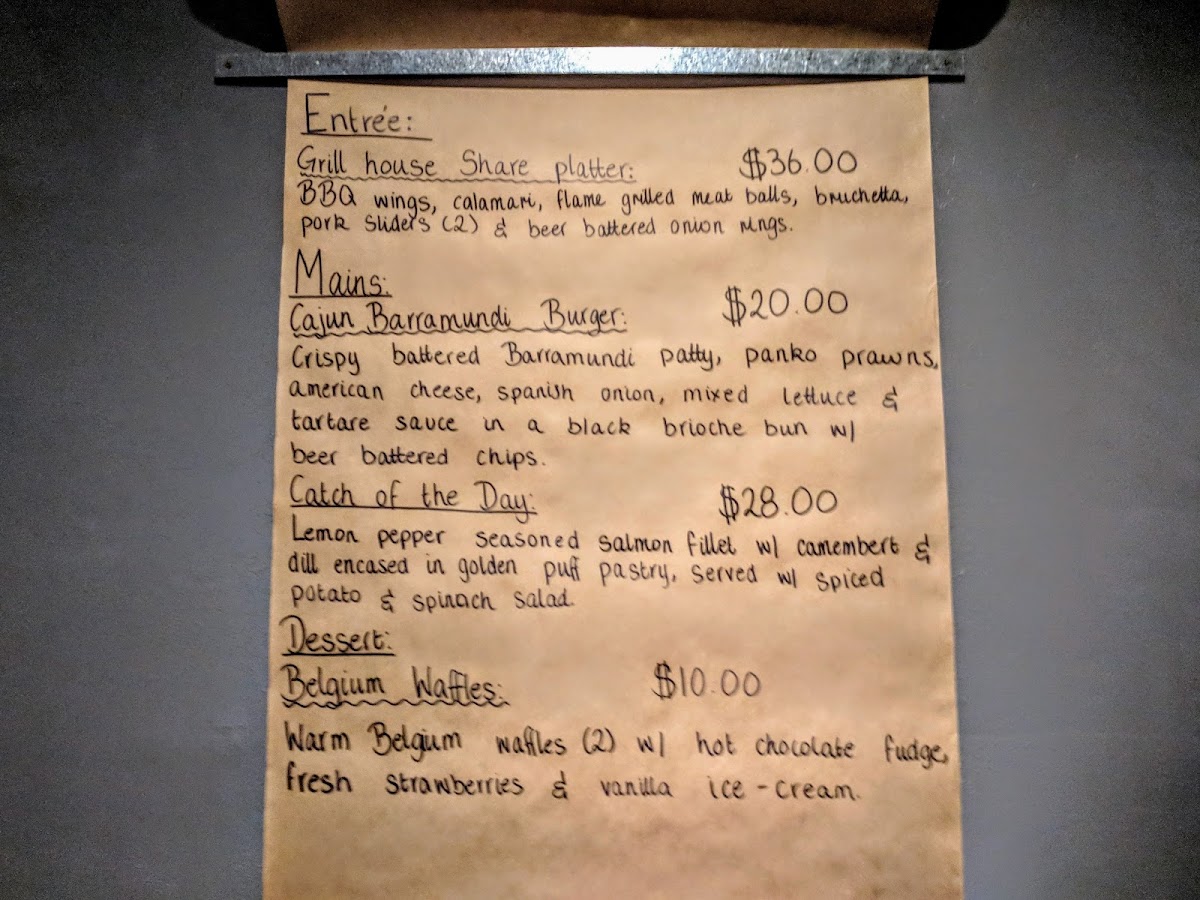 Entrée:
Grill house Share platter: $36.00
BBQ wings, calamari, flame grilled meat balls, bruchetta,
pork sliders (2) & beer battered onion rings.
Mains:
Cajun Barramundi Burger: $20.00
Crispy battered Barramundi patty, panko prawns,
american cheese, spanish onion, mixed lettuce &
tartare sauce in a black brioche bun w/
beer battered chips.
Catch of the Day: $28.00
Lemon pepper seasoned salmon fillet w/ camembert &
dill encased in golden puff pastry, served w/ spiced
potato & spinach salad.
Dessert:
Belgium Waffles: $10.00
Warm Belgium waffles (2) w/ hot chocolate fudge,
fresh strawberries & vanilla ice-cream.